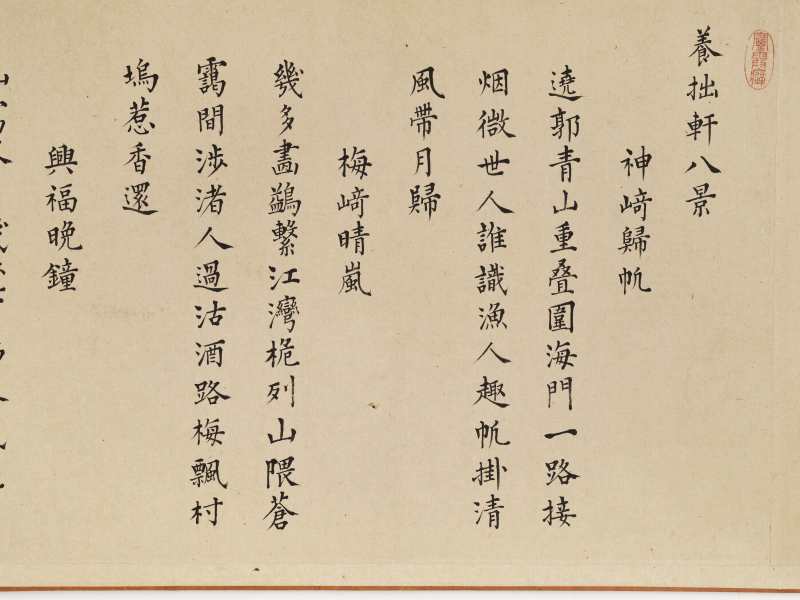 養拙軒八景
神﨑歸帆
遶郭青山重叠圍海門一路接
烟微世人誰識漁人趣帆掛清
風帶月歸
梅﨑晴嵐
幾多畵鷁繫江灣桅列山隈蒼
靄間渉渚人過沽酒路梅飄村
塢惹香還
興福晩鐘